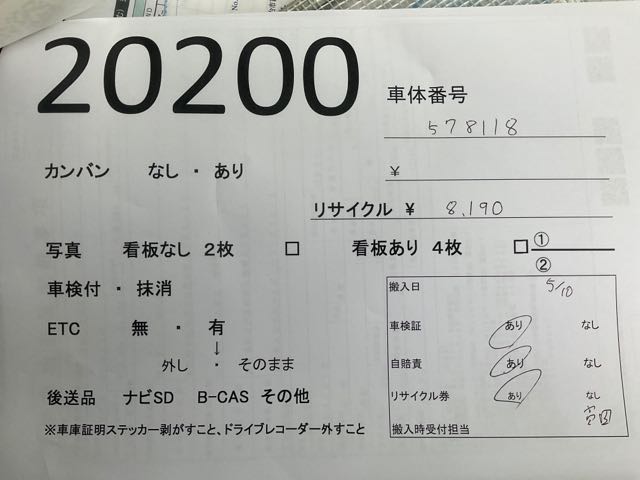 20200
車体番号
578118
カンバン なし ・ あり
¥
リサイクル ¥ 8,190
写真 看板なし 2枚 □ 看板あり 4枚 □ ①
②
車検付 ・ 抹消
ETC 無 ・ 有
↓
外し ・ そのまま
後送品 ナビSD B-CAS その他
※車庫証明ステッカー剥がすこと、ドライブレコーダー外すこと
搬入日 5/10
車検証 あり なし
自賠責 あり なし
リサイクル券 あり なし
搬入時受付担当